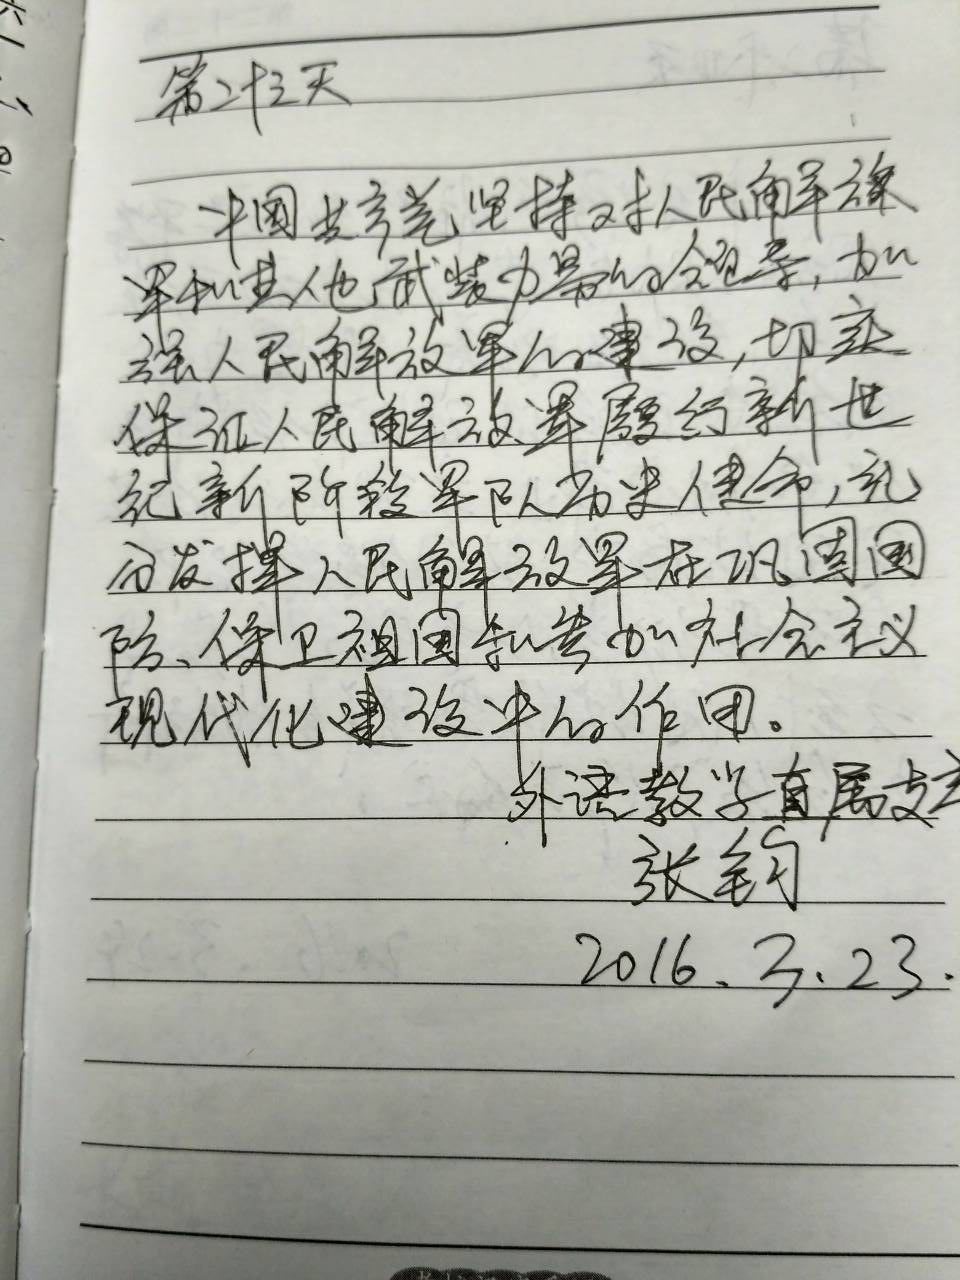 第二十三天
中国共产党坚持对人民解放
军和其他武装力量的领导，加
强人民解放军的建设，切实
保证人民解放军履行新世
纪新阶段军队历史使命，充
分发挥人民解放军在巩固国
防、保卫祖国和参加社会主义
现代化建设中的作用。
外语教学直属支
张钧
2016.3.23.